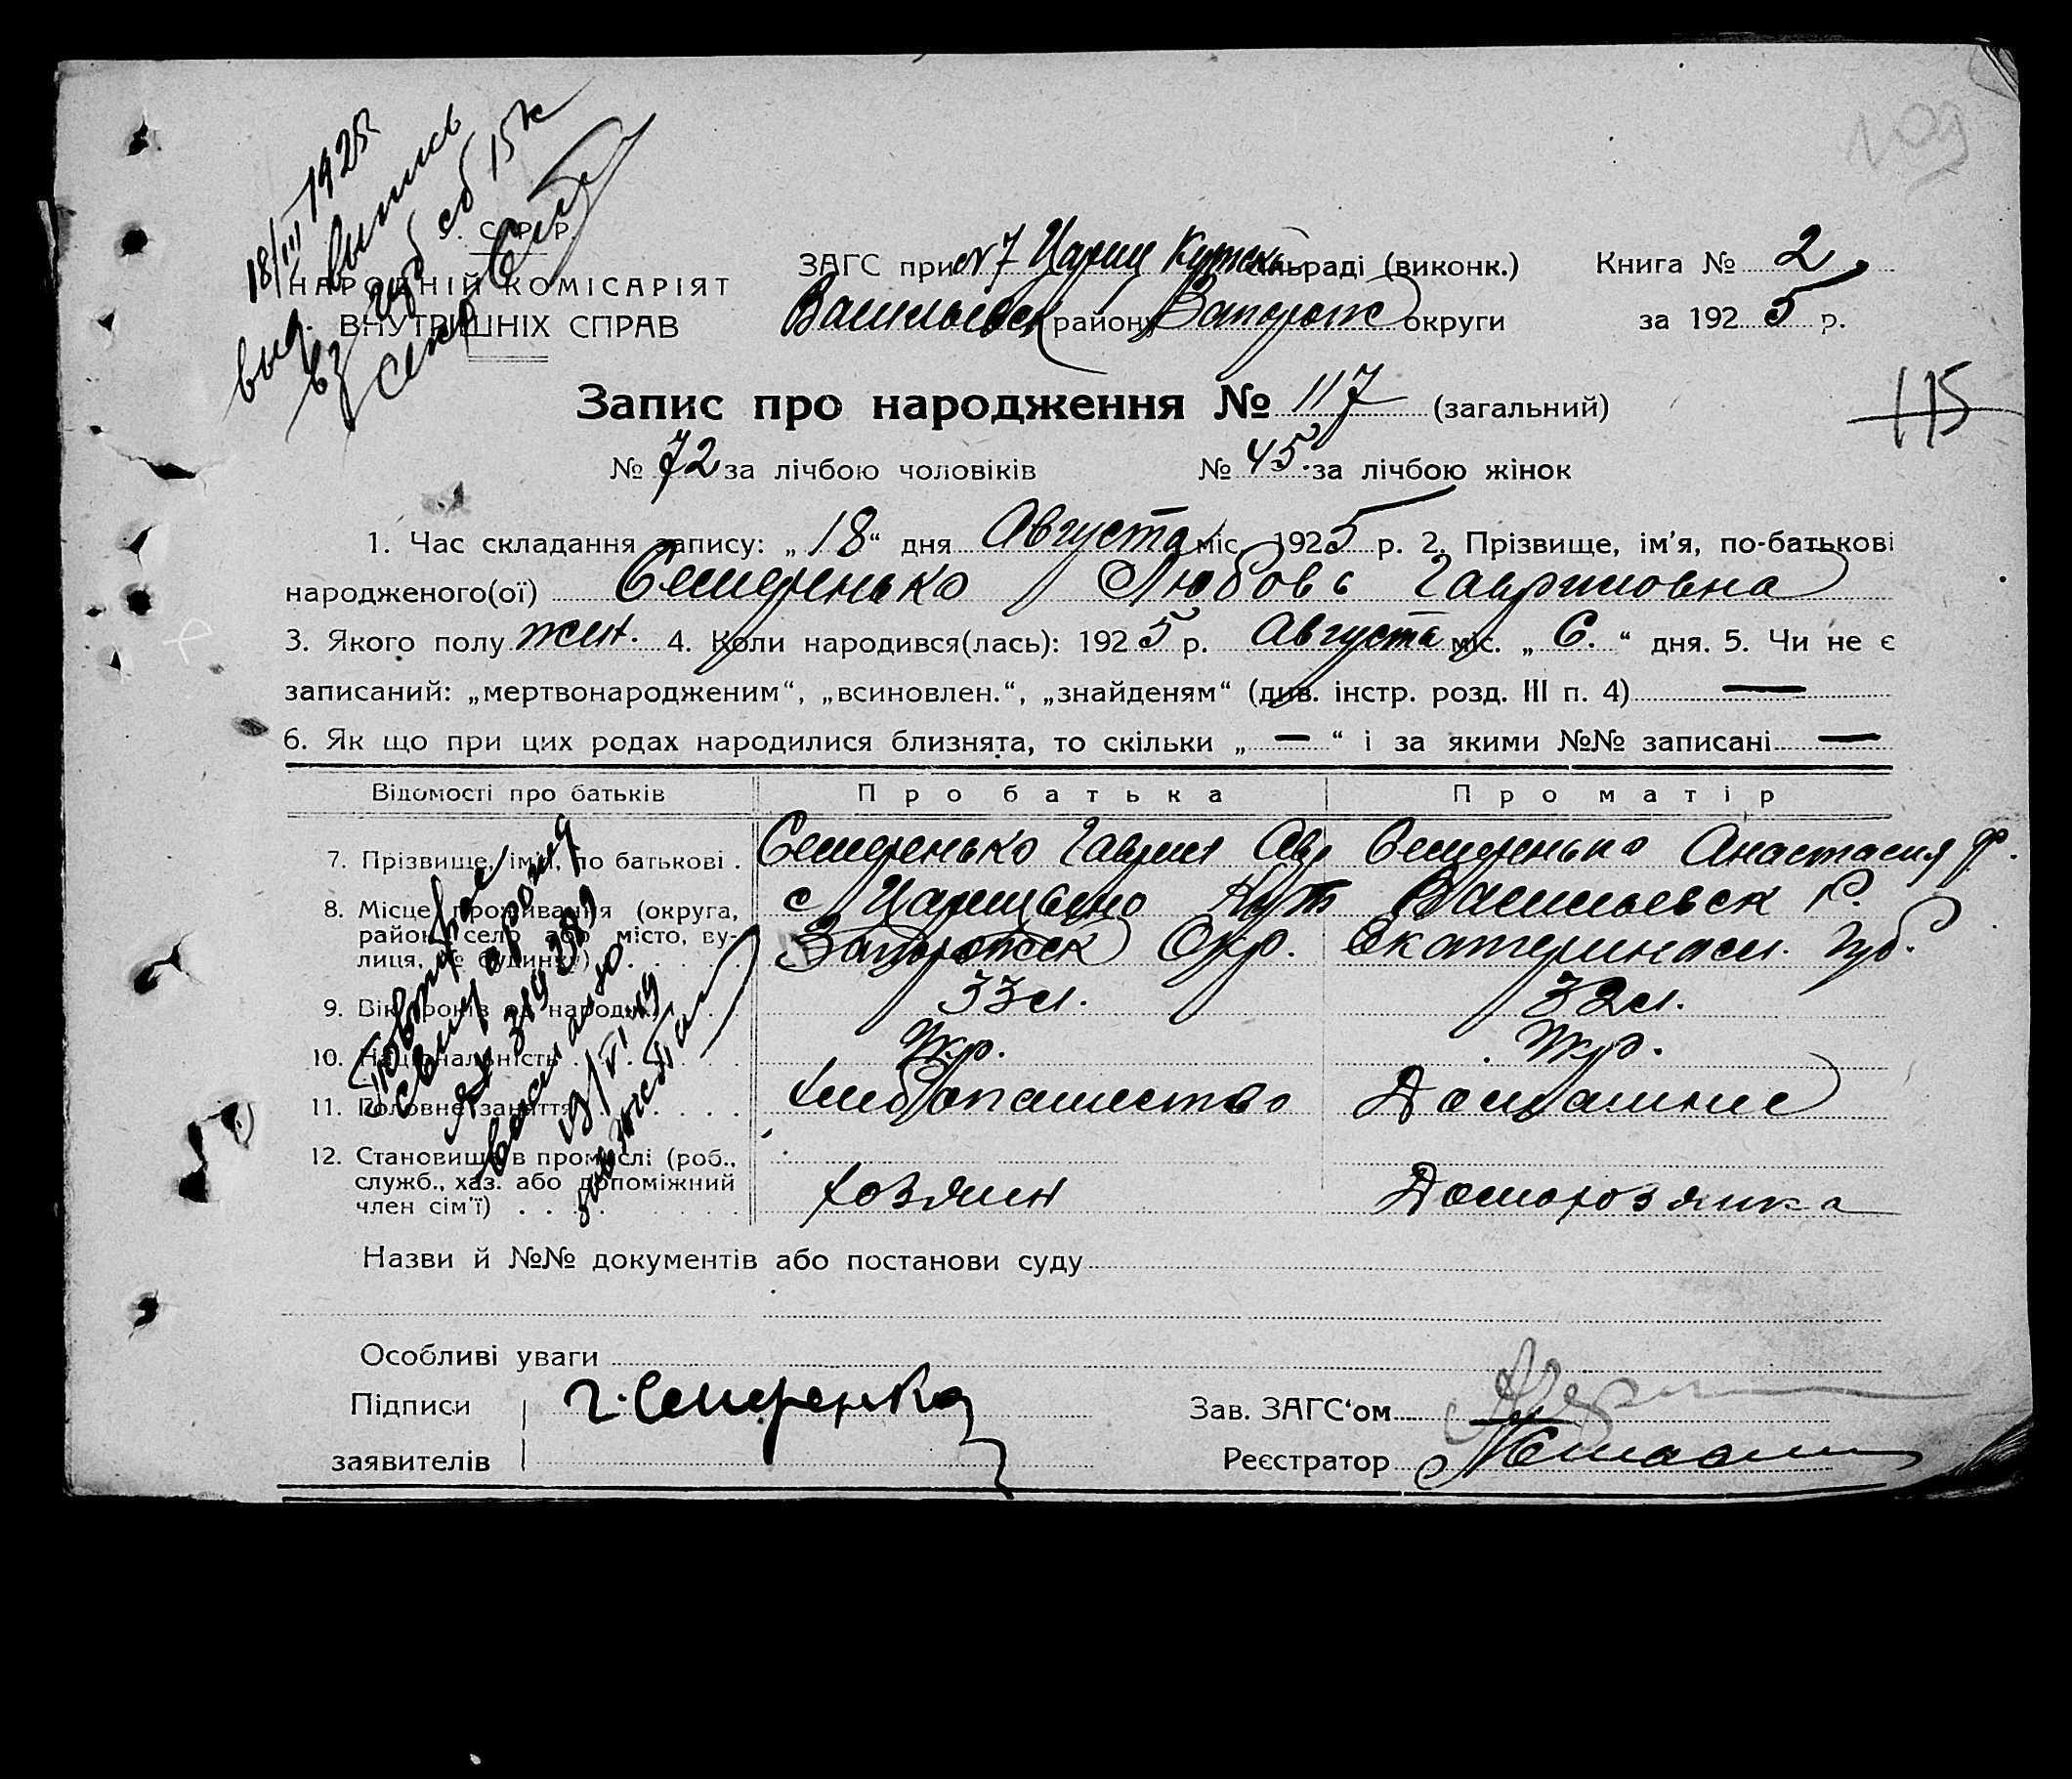 109
18/III 1925
выпись
У. С. Р. Р.
НАРОДНІЙ КОМІСАРІЯТ
ВНУТРІШНІХ СПРАВ
ЗАГС при №7 Цариц Кутск сільраді (виконк.)
Васильевск району Запорож округи
Книга № 2
за 1925 р.
Запис про народження № 117 (загальний)
115
№ 72 за лічбою чоловіків № 45. за лічбою жінок
1. Час складання запису: „18“ дня Августа міс. 1925 р. 2. Прізвище, ім'я, по-батькові
народженого(ої) Семеренько Любовь Гавриловна
3. Якого полу жен. 4. Коли народився(лась): 1925 р. Августа міс. „6.“ дня. 5. Чи не є
записаний: „мертвонародженим“, „всиновлен.“, „знайденям“ (див. інстр. розд. III п. 4) —
6. Як що при цих родах народилися близнята, то скільки „—“ і за якими №№ записані —
Відомості про батьків Про батька Про матір
7. Прізвище, ім'я, по батькові . Семеренько Гаврил Семеренько Анастасия Ф.
8. Місце проживання (округа, район, село або місто, вулиця, № будинку) с Царицыно Кут Васильевск Р.
Запорожск Окр. Екатеринасл. Губ.
9. Вік (років од народж.) 33 л. 32 л.
10. Національність Укр. Укр.
11. Головне заняття Хлебопашество Домашние
12. Становище в промислі (роб., служб., хаз. або допоміжний член сім'ї) Хозяин Домохозяйка
Назви й №№ документів або постанови суду
Особливі уваги
Підписи заявителів Г. Семеренко
Зав. ЗАГС‘ом
Реєстратор